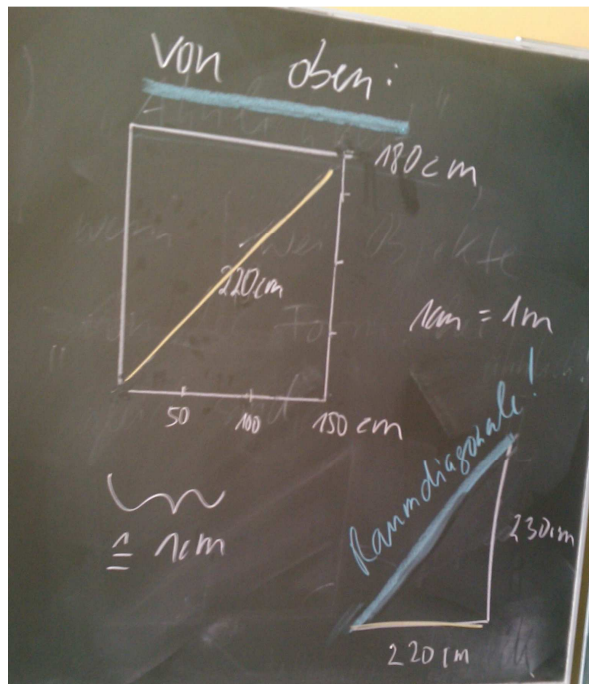 von oben:
180cm
220cm
1cm = 1m
50
100
150cm
≙ 1cm
Raumdiagonale!
230cm
220cm